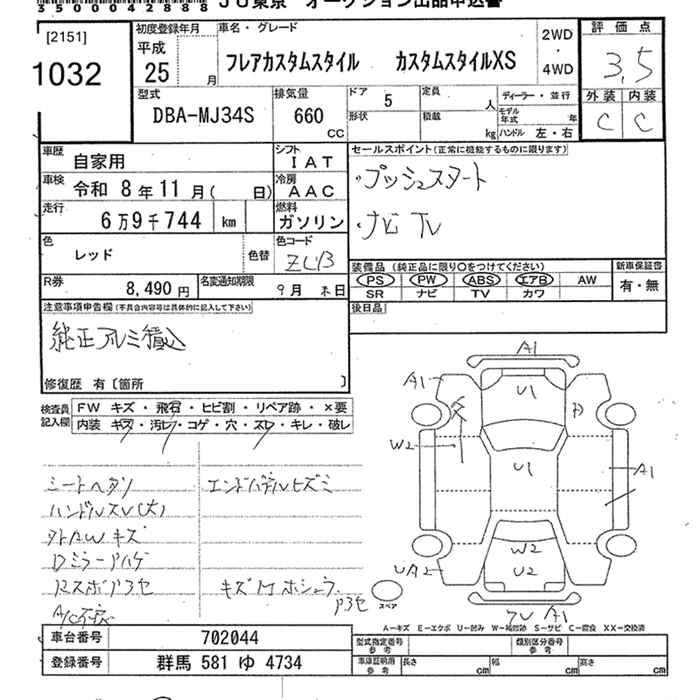 35000042888 JU東京 オークション出品申込書
[2151]
1032
初度登録年月
平成
25 月
車名・グレード
フレアカスタムスタイル カスタムスタイルXS
2WD
・
4WD
評価点
3,5
外装 内装
C C
型式
DBA-MJ34S
排気量
660
CC
ドア 5
形状
定員 人
積載 kg
ディーラー・並行
モデル年式 年
ハンドル 左・右
車歴 自家用
シフト IAT
車検 令和 8年11月( 日)
冷房 AAC
走行 6万9千744 km
燃料 ガソリン
色 レッド
色替
色コード
R券 8,490円
名変通知期限 9月 末日
セールスポイント(正常に機能するものに限ります)
・プッシュスタート
・ナビ TV
装備品(純正品に限り○をつけてください)
PS PW ABS エアB AW
SR ナビ TV カワ
新車保証書
有・無
後日品
注意事項申告欄(不具合内容等は具体的に記入して下さい)
純正アルミ積込
修復歴 有〔箇所 〕
検査員記入欄
FW キズ・飛石・ヒビ割・リペア跡・×要
内装 キズ・汚レ・コゲ・穴・スレ・キレ・破レ
シートヘタリ
ハンドルスレ(大)
外AWキズ
Dミラーアハゲ
エンドパネルヒズミ
A1
A1
U1
W2
U1
A1
W2
U2
UA2
A1
スペア
A-キズ E-エクボ U-凹み W-補修跡 S-サビ C-腐食 XX-交換済
車台番号 702044
登録番号 群馬 581 ゆ 4734
型式指定番号 参考
類別区分番号 参考
車庫証明用 参考
長さ cm
幅 cm
高さ cm